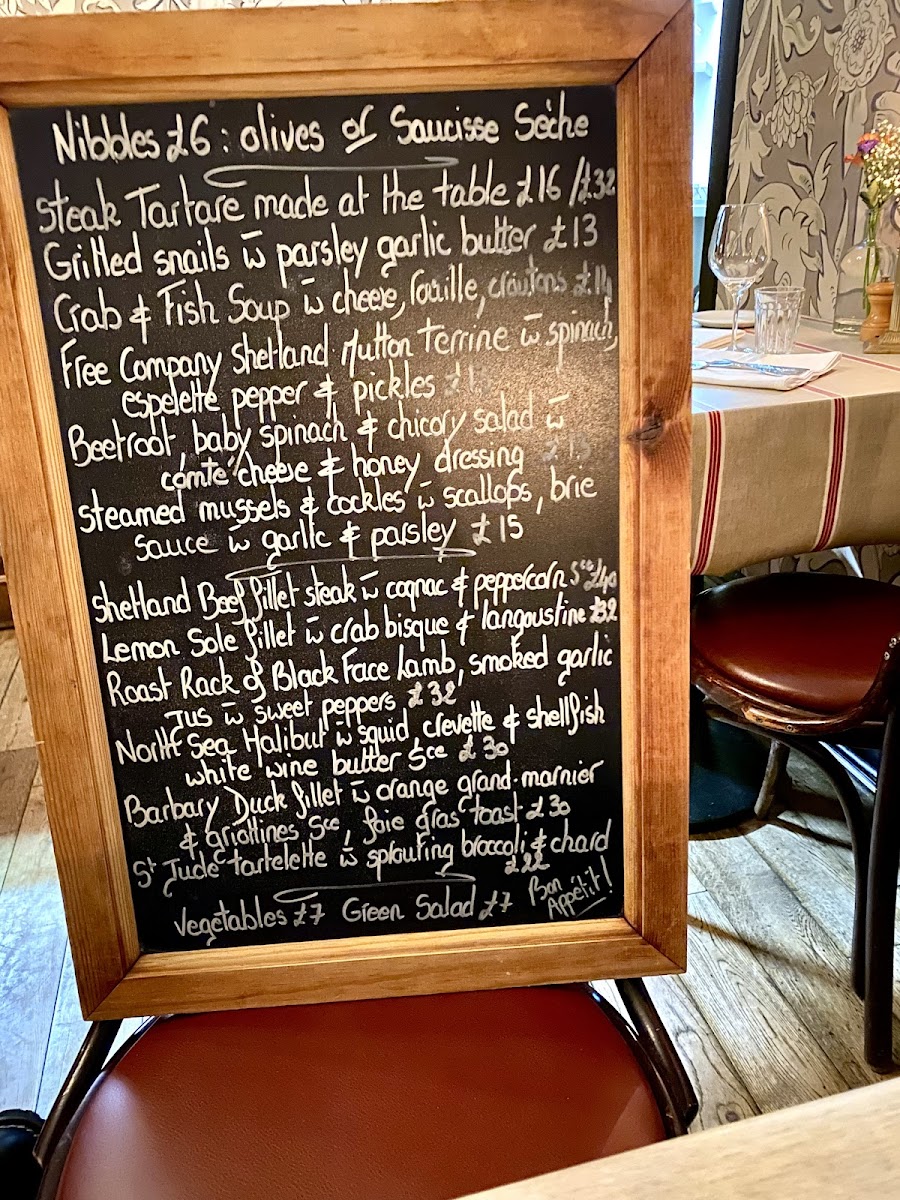 Nibbles £6 : olives or Saucisse Sèche
Steak Tartare made at the table £16 / £32
Grilled snails w̄ parsley garlic butter £13
Crab & Fish Soup w̄ cheese, rouille, croûtons £14
Free Company Shetland Mutton Terrine w̄ spinach,
espelette pepper & pickles
Beetroot, baby spinach & chicory salad w̄
comté cheese & honey dressing £13
Steamed mussels & cockles w̄ scallops, brie
sauce w̄ garlic & parsley £15
Shetland Beef fillet steak w̄ cognac & peppercorn Sce £40
Lemon Sole fillet w̄ crab bisque & langoustine £32
Roast Rack of Black Face Lamb, smoked garlic
Jus w̄ sweet peppers £32
North Sea Halibut w̄ squid, crevette & shellfish
white wine butter Sce £30
Barbary Duck fillet w̄ orange grand-marnier
& griottines Sce, foie gras toast £30
St Jude tartelette w̄ sprouting broccoli & chard
£22
Vegetables £7 Green Salad £7
Bon
Appétit!